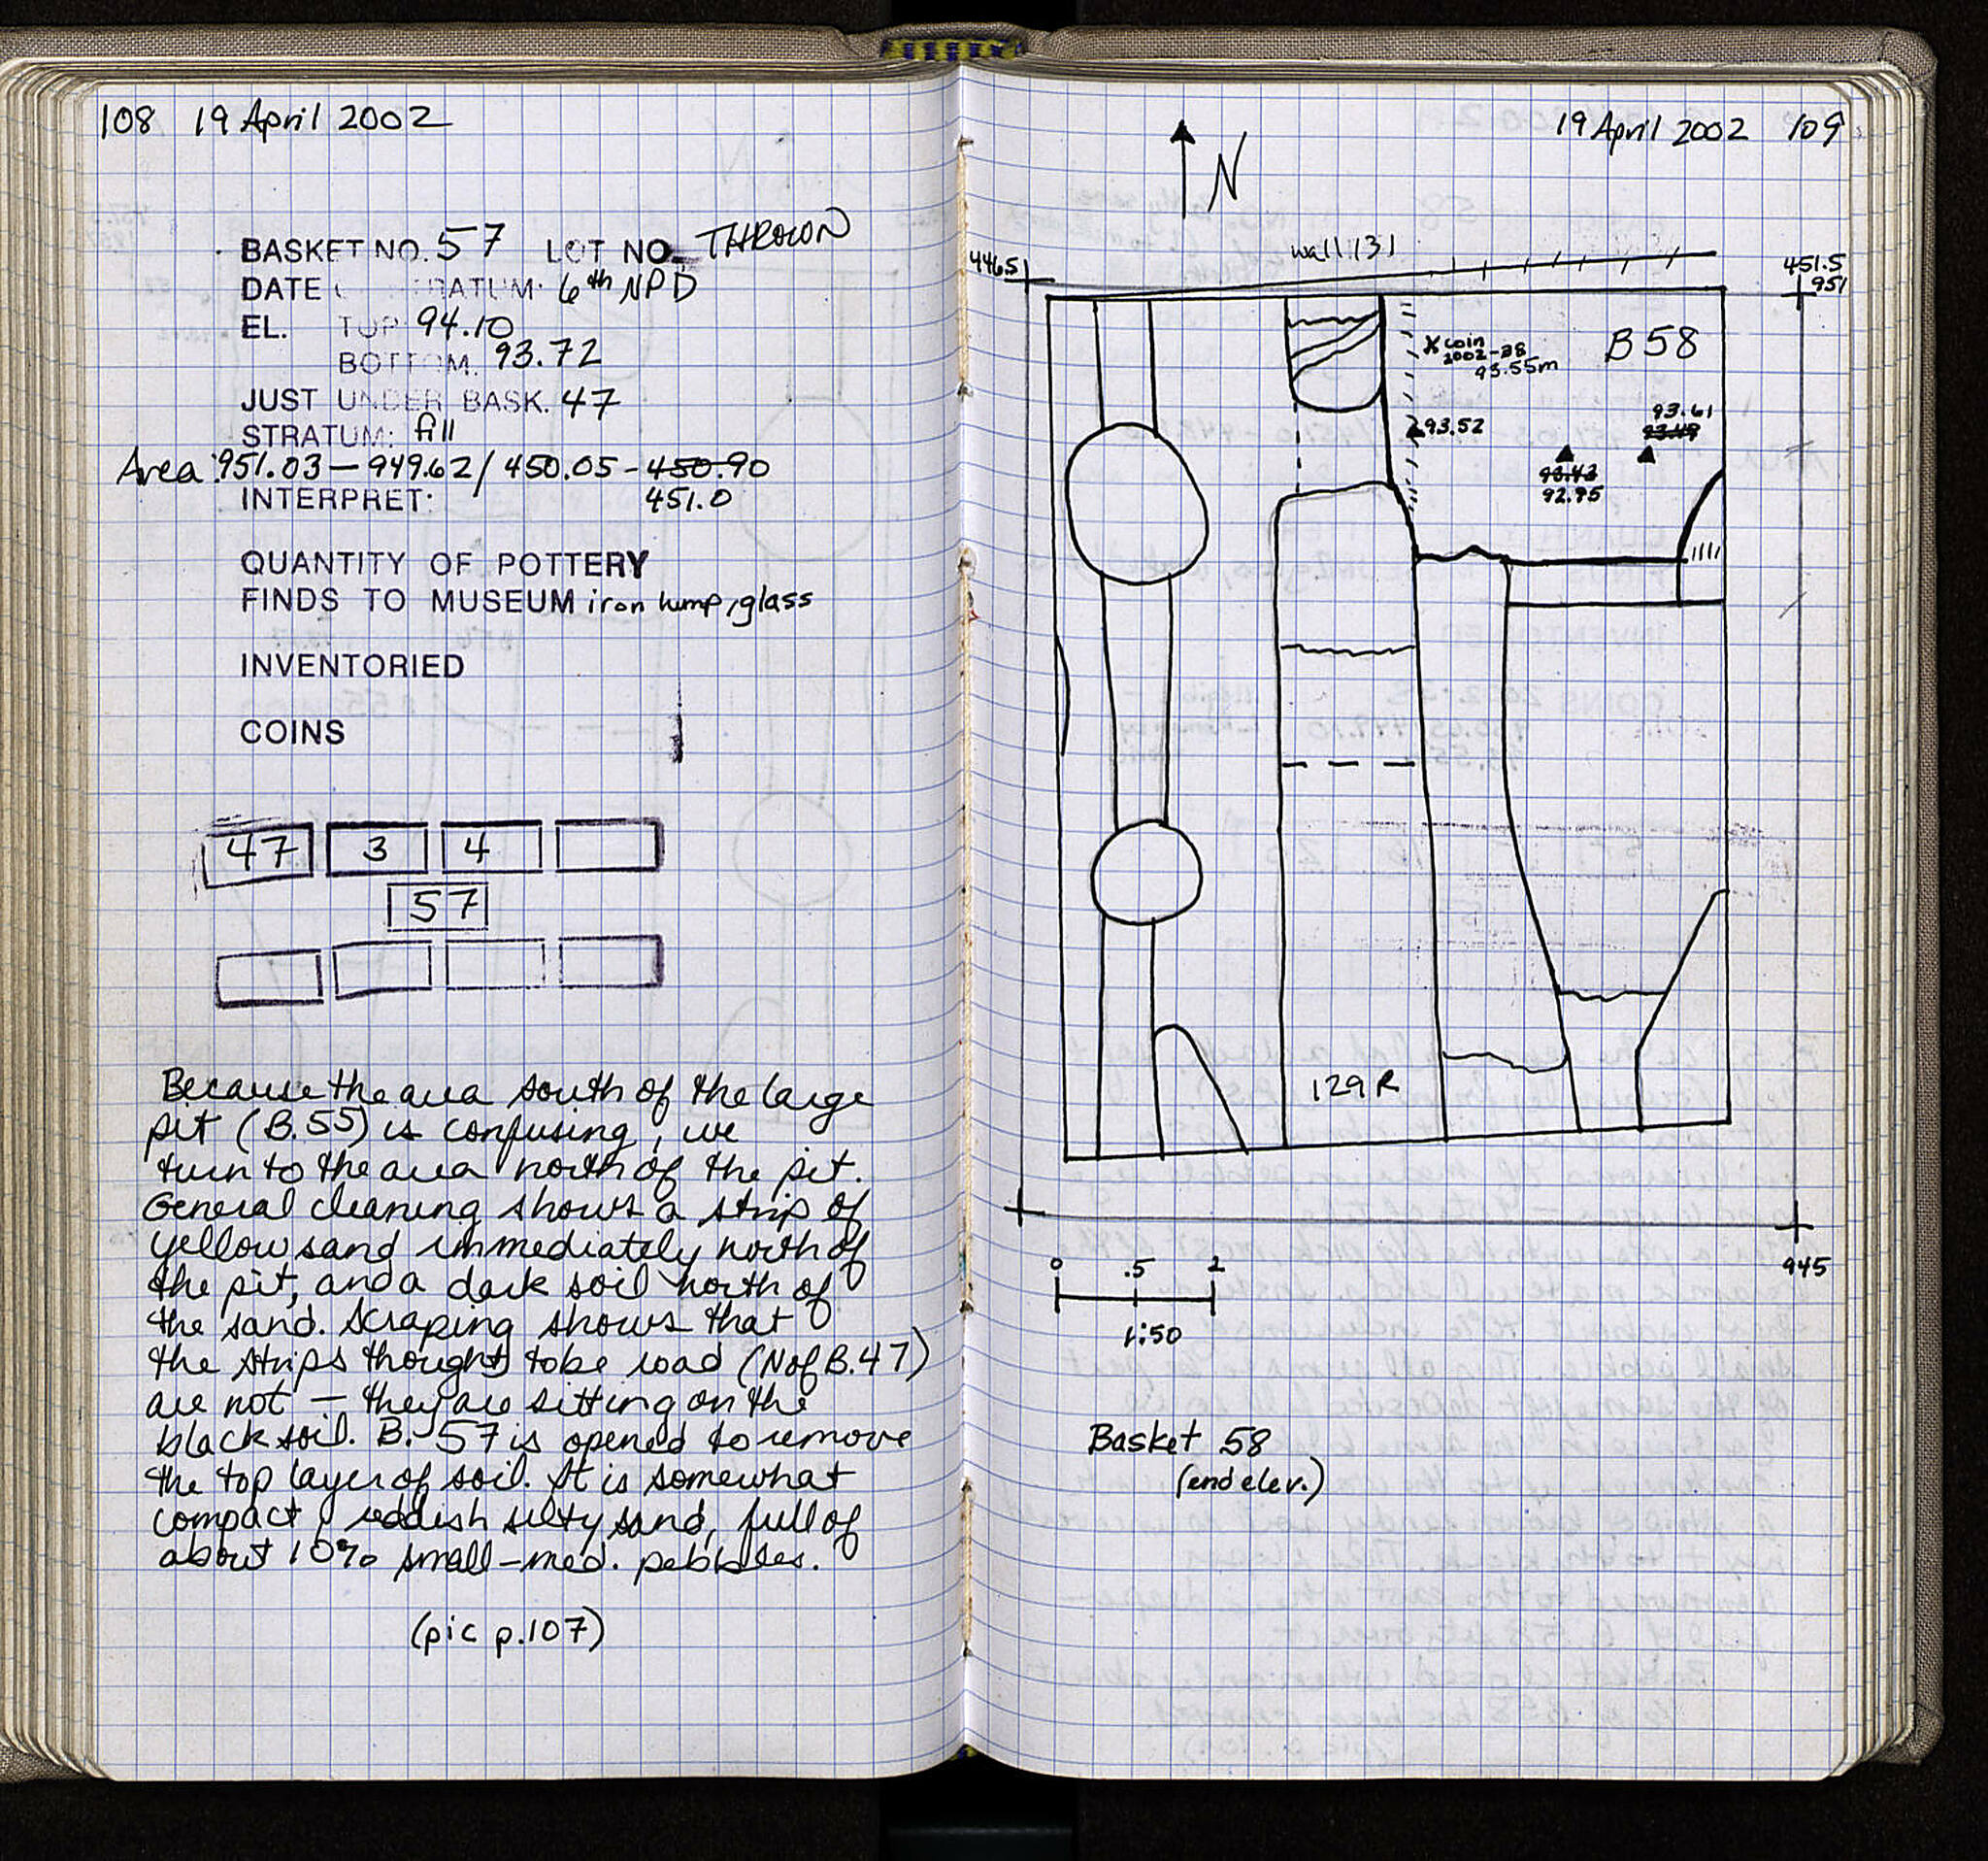 108 19 April 2002
BASKET NO. 57 LOT NO. THROWN
DATE STRATUM: 6th NPD
EL. TOP: 94.10
BOTTOM: 93.72
JUST UNDER BASK. 47
STRATUM: fill
Area: 951.03 – 949.62 / 450.05 - 450.90
INTERPRET: 451.0
QUANTITY OF POTTERY
FINDS TO MUSEUM iron lump, glass
INVENTORIED
COINS
47 3 4
57
Because the area south of the large
pit (B.55) is confusing, we
turn to the area north of the pit.
General cleaning shows a strip of
yellow sand immediately north of
the pit, and a dark soil north of
the sand. Scraping shows that
the strips thought to be road (N of B.47)
are not – they are sitting on the
black soil. B. 57 is opened to remove
the top layer of soil. It is somewhat
compact, reddish silty sand, full of
about 10% small-med. pebbles.
(pic p.107)
19 April 2002 109
N
wall 131
446.5
451.5
951
B58
coin
2002-38
93.55m
93.52
93.61
93.49
93.43
92.95
129 R
0 .5 1
1:50
945
Basket 58
(end elev.)